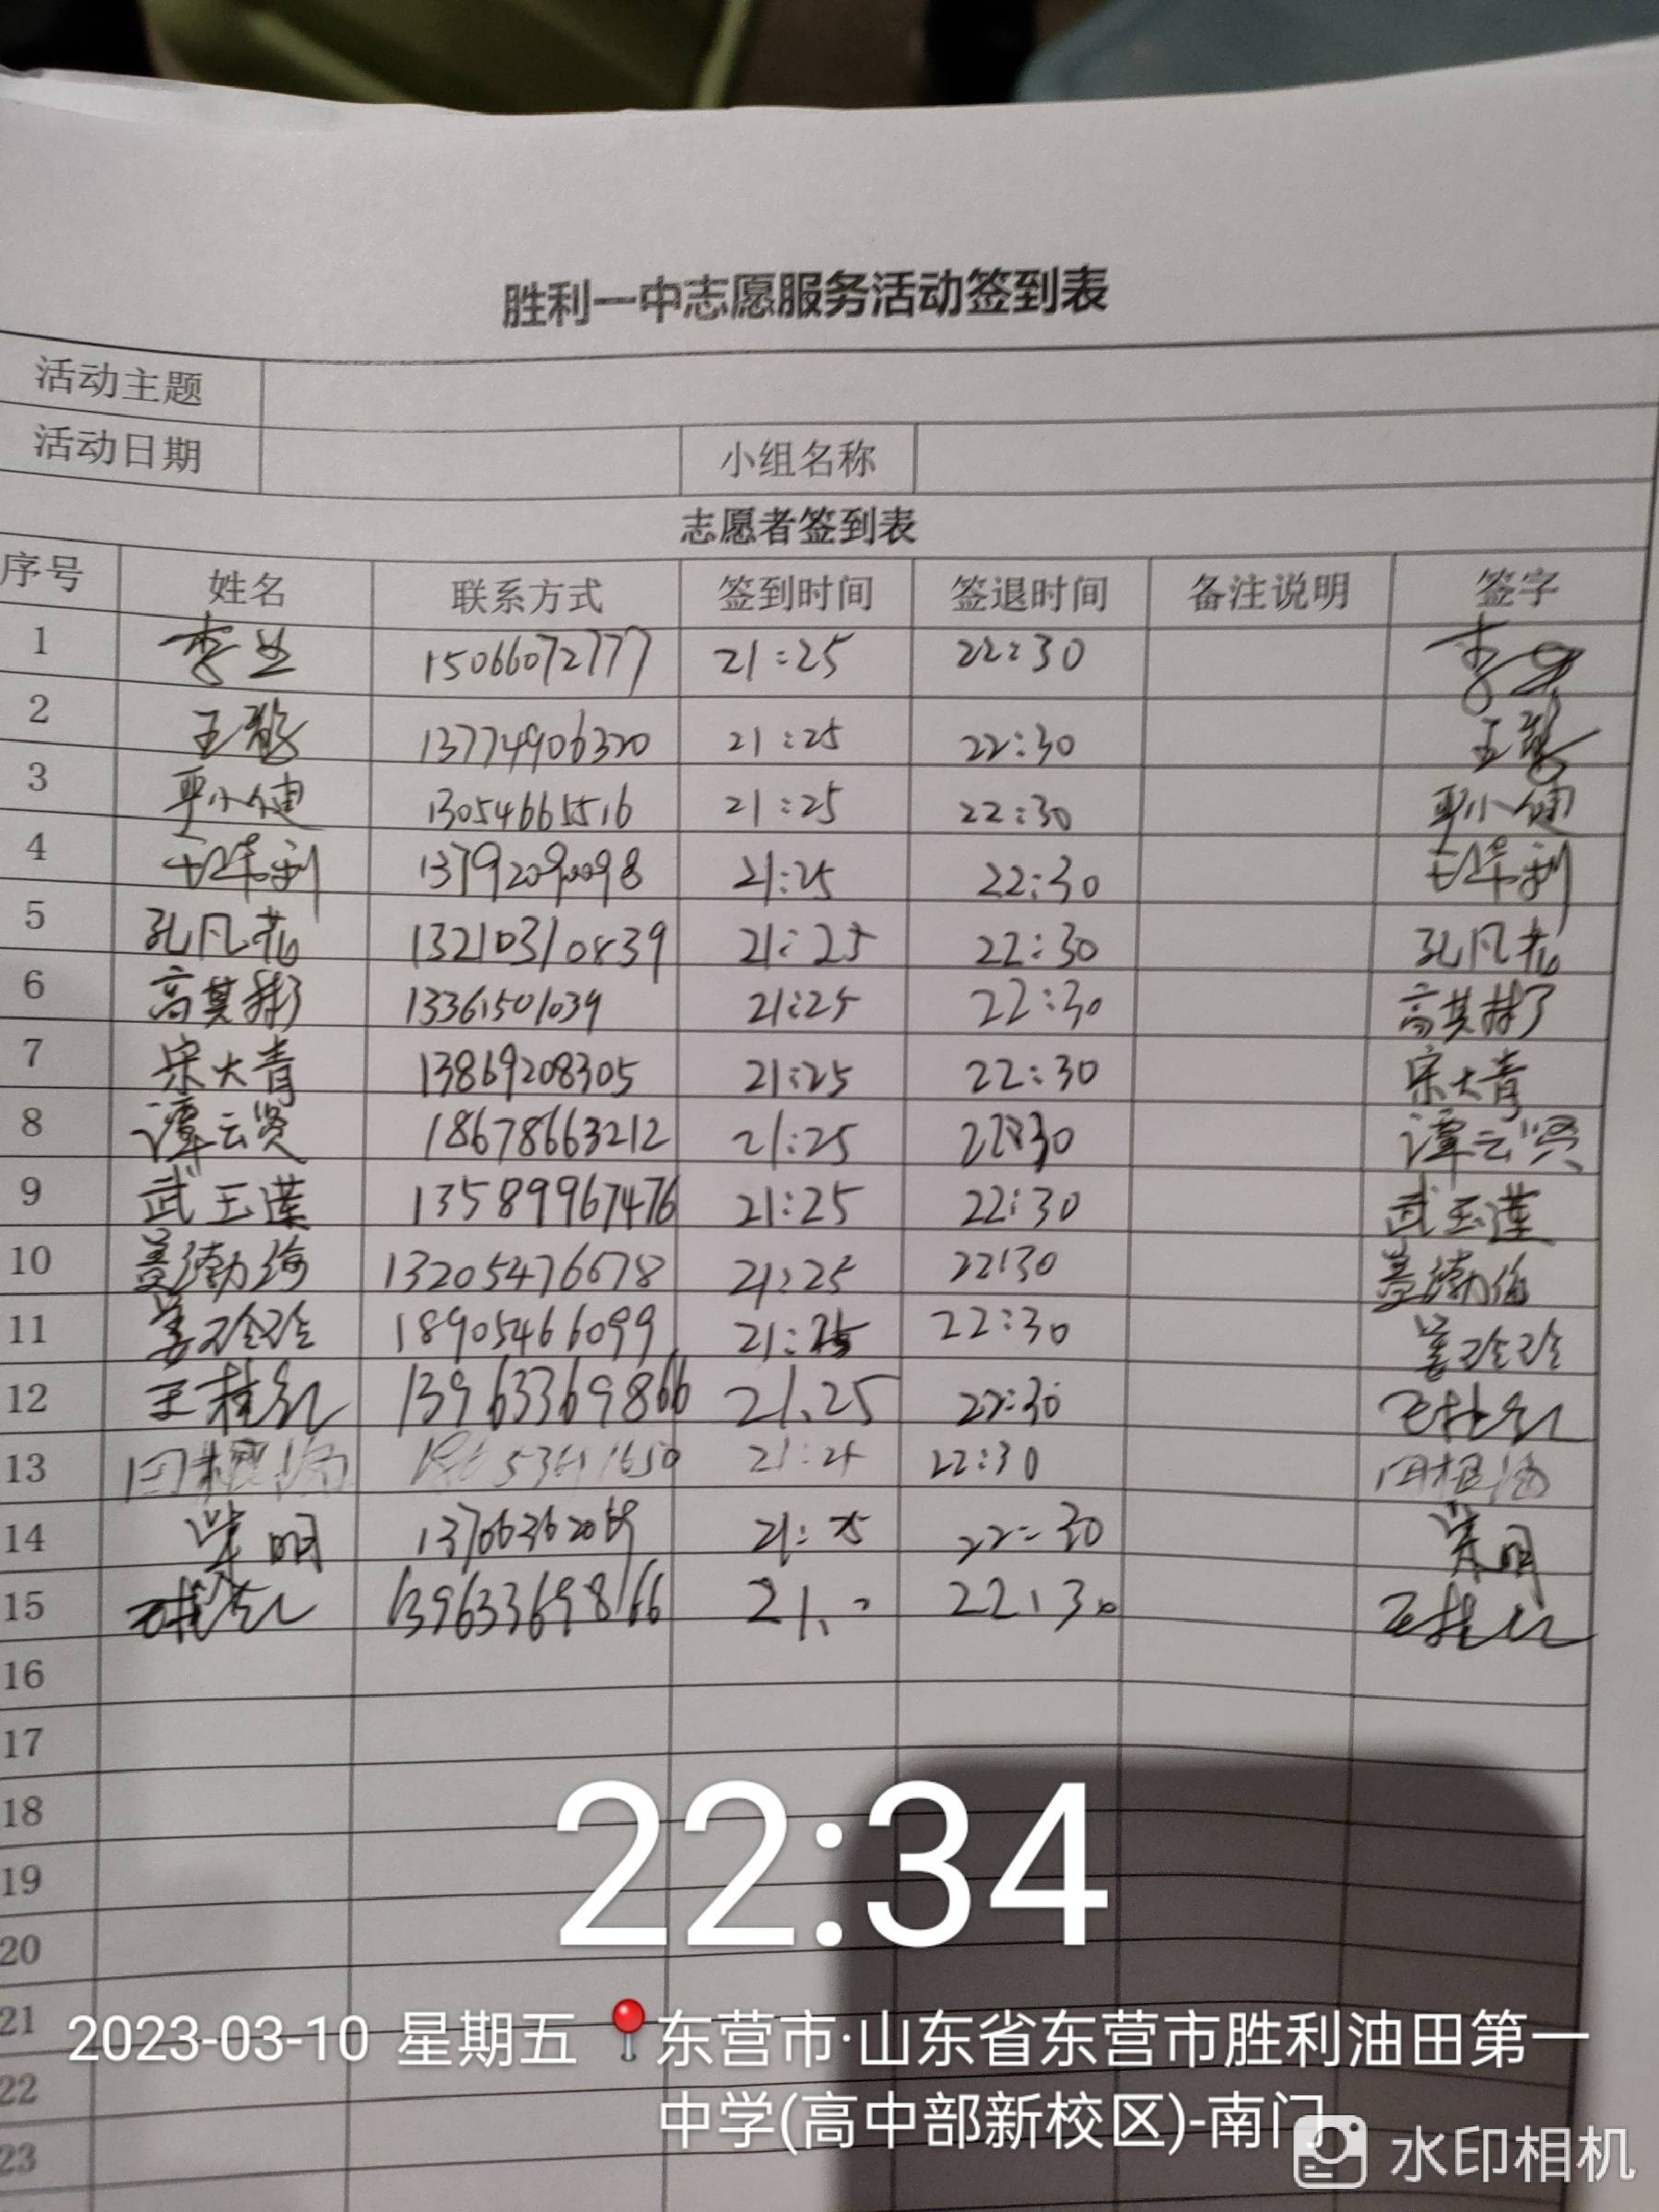 胜利一中志愿服务活动签到表
活动主题
活动日期 小组名称
志愿者签到表
序号 姓名 联系方式 签到时间 签退时间 备注说明 签字
1 15066072777 21:25 22:30
2 13774906320 21:25 22:30
3 13054665516 21:25 22:30
4 13792090098 21:25 22:30
5 孔凡花 13210310839 21:25 22:30 孔凡花
6 高其彬 13361501039 21:25 22:30 高其彬
7 宋大青 13869208305 21:25 22:30 宋大青
8 谭云贤 18678663212 21:25 22:30 谭云贤
9 武玉莲 13589967476 21:25 22:30 武玉莲
10 盖渤海 13205476678 21:25 22:30 盖渤海
11 姜玲玲 18905466099 21:25 22:30 姜玲玲
12 王桂红 13963369866 21.25 22:30 王桂红
13 22:30
14 柴明 13706362069 22-30 柴明
15 13963369866 22:30 王桂红
16
17
18
19
20
21
22
23
22:34
2023-03-10 星期五 东营市·山东省东营市胜利油田第一
中学(高中部新校区)-南门
水印相机